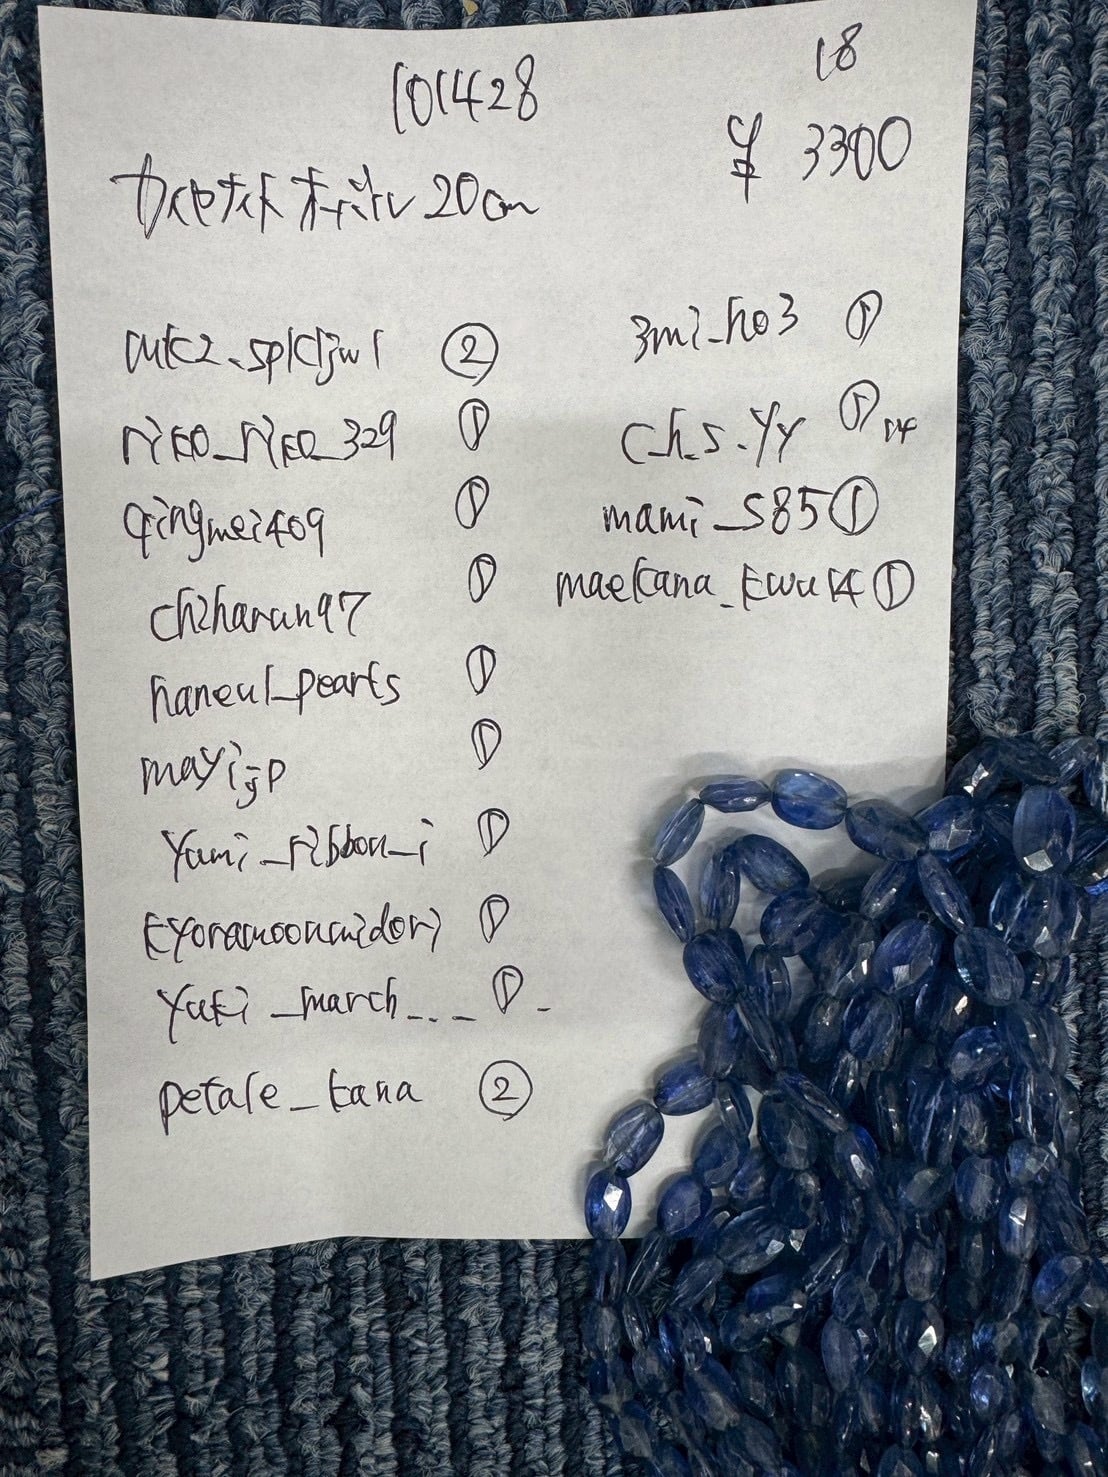 101428
18
¥ 3300
カイヤナイト オーバル 20cm
rico_rico_329 ①
qingmei409 ①
chiharun97 ①
haneul_pearls ①
mayijp ①
yumi_ribbon_i ①
kyoramoonmidori ①
yuki_march_.._ ① -
petale_kana ②
3mi_ho3 ①
ch_s.yy ①
mami_s85 ①
maekana_kwu14 ①